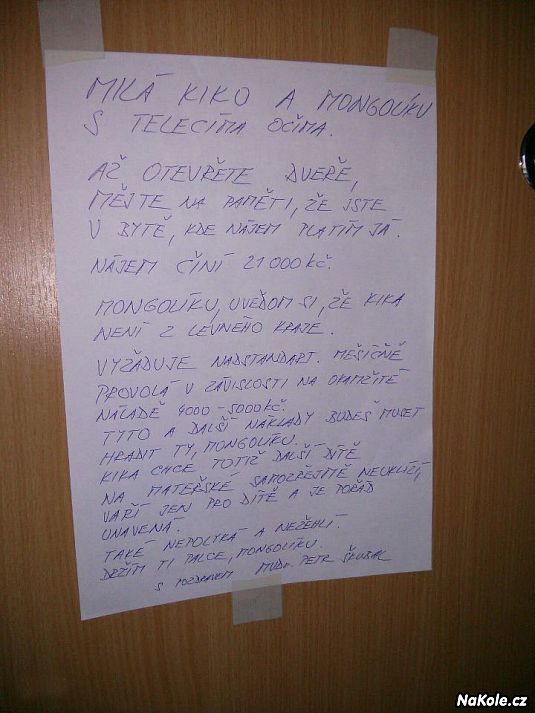 MILÁ KIKO A MONGOLÍKU
S TELECÍMA OČIMA.
AŽ OTEVŘETE DVEŘE,
MĚJTE NA PAMĚTI, ŽE JSTE
V BYTĚ, KDE NÁJEM PLATÍM JÁ.
NÁJEM ČINÍ 21 000 KČ.
MONGOLÍKU, UVĚDOM SI, ŽE KIKA
NENÍ Z LEVNÉHO KRAJE.
VYŽADUJE NADSTANDART. MĚSÍČNĚ
PROVOLÁ V ZÁVISLOSTI NA OKAMŽITÉ
NÁLADĚ 4000 - 5000 KČ.
TYTO A DALŠÍ NÁKLADY BUDEŠ MUSET
HRADIT TY, MONGOLÍKU.
KIKA CHCE TOTIŽ DALŠÍ DÍTĚ
NA MATEŘSKÉ SAMOZŘEJMĚ NEUKLÍZÍ,
VAŘÍ JEN PRO DÍTĚ A JE POŘÁD
UNAVENÁ.
TAKÉ NEPOLYKÁ A NEŽEHLÍ.
DRŽÍM TI PALCE, MONGOLÍKU.
S POZDRAVEM MUDr. PETR
NaKole.cz